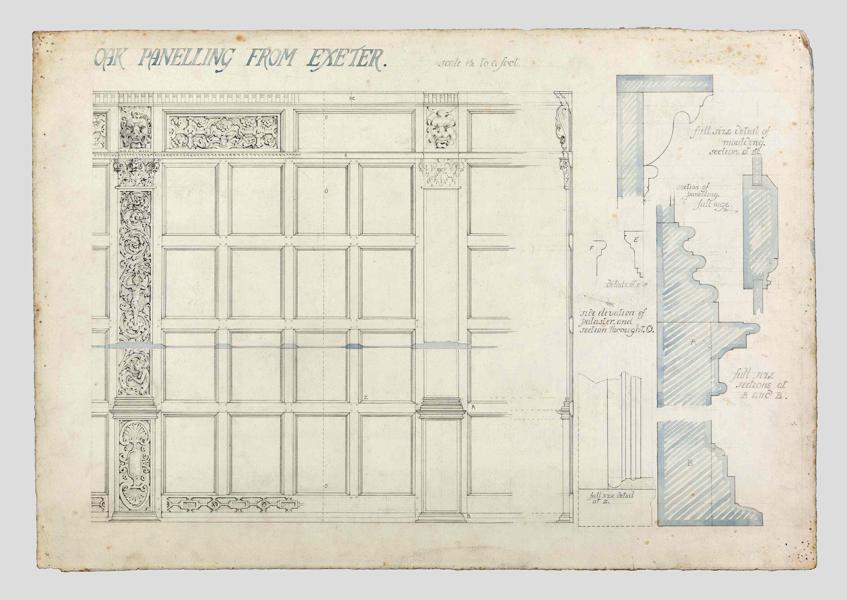 OAK PANELLING FROM EXETER.
scale 1½ to a foot.
full size detail of
moulding.
section at
section of
panelling.
full size.
F
E
details at
side elevation of
pilaster, and
section through O.
full size
sections at
A and B.
A
B
full size detail
at